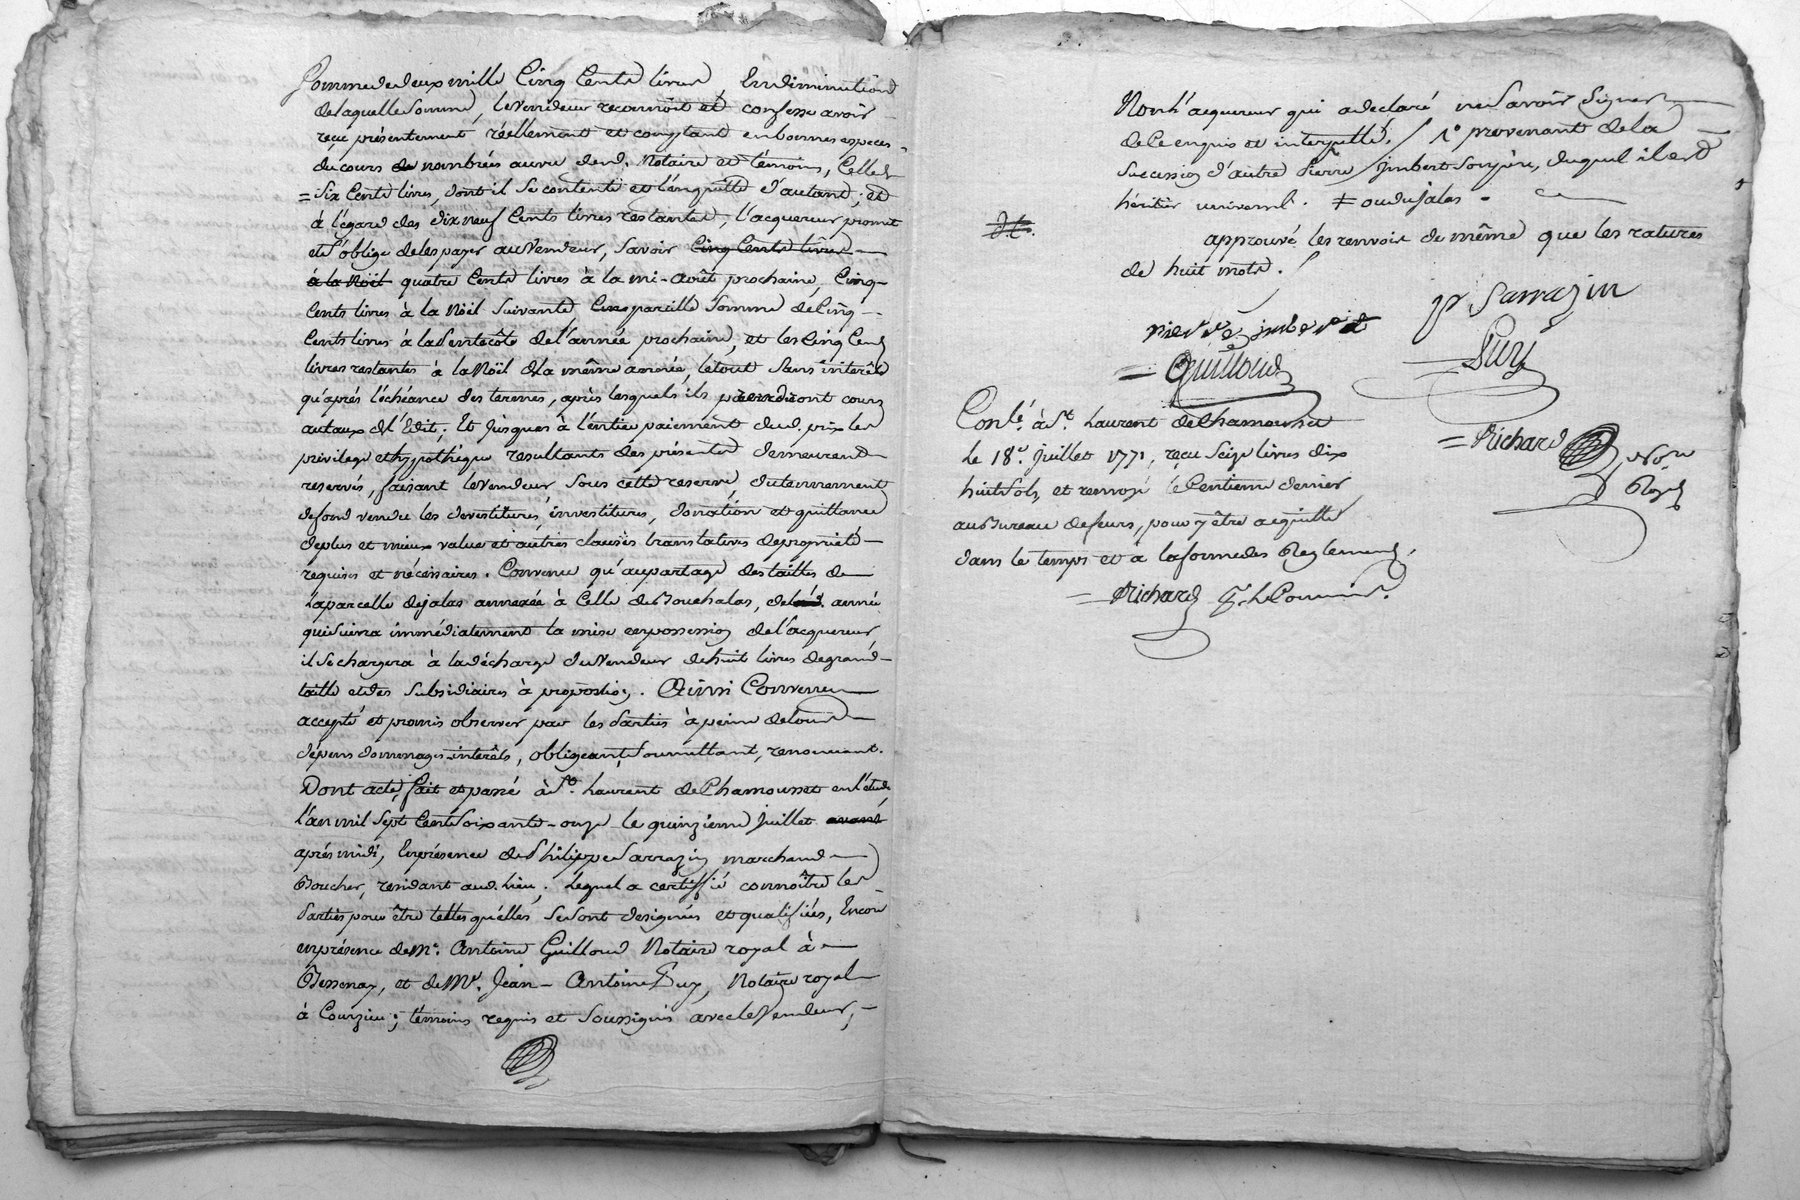 Somme de deux mille Cinq Cents livres, En diminution
de laquelle Somme, le Vendeur reconnoit et confesse avoir
reçu présentement, réellement et comptant en bonnes especes
du cours de nombrées au vu desd. Notaire et témoins, Celle de
= Six Cents livres, dont il Se contente et l'en quitte d'autant; et
à l'égard des dix neuf Cents livres restantes, l'acquereur promet
et s'oblige de les payer au Vendeur, Savoir Cinq Cents livres
à la Nöël quatre Cents livres à la mi-août prochaine, Cinq
Cents livres à la Nöël Suivante, Une pareille Somme de Cinq
Cents livres à la Pentecôte de l'année prochaine, et les Cinq Cens
livres restantes à la Nöël de la même année, le tout Sans intérêts
qu'après l'échéance des termes, après lesquels ils prendront cours
au taux de l'Edit; Et jusques à l'entier paiement dud. prix les
privilege et hypothèque resultants des présentes demeurent
reservés, faisant le Vendeur Sous cette reserve, du tennement
de fond vendu les devestitures, investitures, donation et quittance
de plus et mieux value et autres clauses translatives de propriété
requises et nécessaires. Convenu qu'au partage des tailles de
la parcelle de jalas annexée à Celle de Bouchalas, de lad. année
qui Suivra immédiatement la mise en possession de l'acquereur,
il Se chargera à la décharge du Vendeur de huit livres de grand
taille et des Subsidiaires à proportion. Ainsi Convenu
accepté et promis observer par les Parties à peine de tous
dépens dommages intérêts, obligeant, Soumettant, renonceant.
Dont acte, fait et passé à St. Laurent de Chamousset en l'étude
l'an mil Sept Cent Soixante-onze le quinzieme Juillet avant
après midi, En présence de Philippe Sarrazin marchand
Boucher, residant aud. Lieu, Lequel a certiffié connoître les
Parties pour être telles qu'elles Se Sont designées et qualifiées, Encor
en présence de Me. Antoine Guilloud Notaire royal à
Bessenay, et de Me. Jean-Antoine Puy, Notaire royal
à Courzieu; témoins requis et Soussignés avec le Vendeur,
Non l'acquereur qui a declaré ne Savoir Signer
de Ce enquis et interpellé. / 1° provenant de la
Succession d'autre Pierre Jmbert Son père, duquel il est
héritier universel. ≠ ou du jalas
approuvé les renvois de même que les ratures
de huit mots.
pr Sarrazin
pierre jmbert
Guilloud
Puy
Richard
Notre
Royal
Conlé. à St. Laurent de Chamousset
Le 18e. Juillet 1771, reçu Seize livres dix
huit Sols, et renvoyé le Centieme denier
au Bureau de feurs, pour y être acquitté
dans le temps et à la forme des Reglements.
Richard